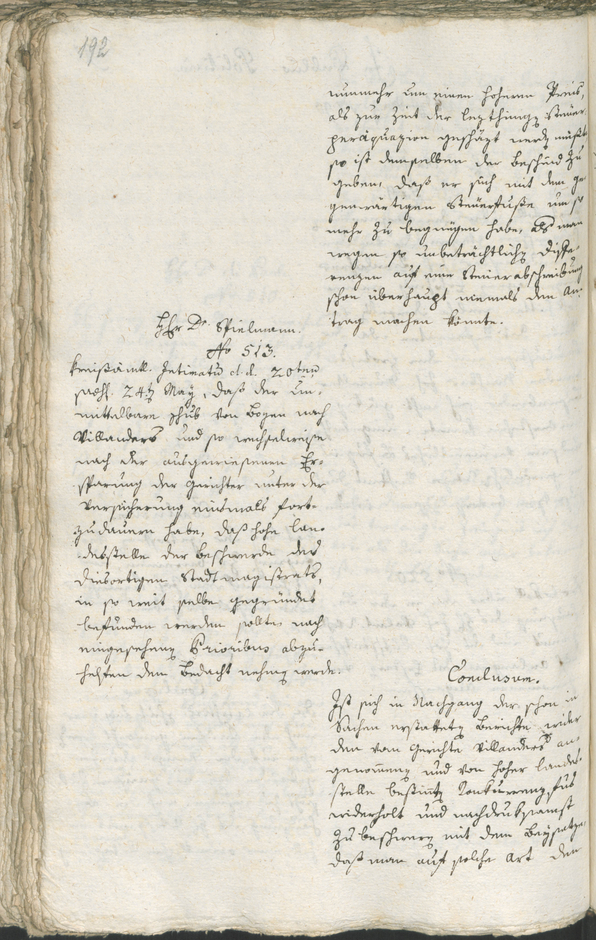 192
nunmehr um einen höheren Preis,
als zur Zeit der lezthinigen Steuer
peräquazion geschäzt werden müßte
so ist demselben der Bescheid zu
geben, daß er sich mit dem ge
genwärtigen Steuerfuße um so
mehr zu begnügen habe, als man
wegen so unbeträchtlichen Diffe-
renzen auf eine Steuerabschreibung
schon überhaupt niemals den An-
trag machen könnte.
H Hr Dr. Spielmann.
No 513.
kreisämtl. Intimatum d.d. 20ten
praes. 24ten May, daß der un-
mittelbare Schub von Bozen nach
Villanders und so wechselweise
nach der ausgewiesenen Er-
sparung der Gerichter unter der
Versicherung einsmals fort-
zudauern habe, daß hohe Lan-
desstelle der Beschwerde des
diesortigen Stadtmagistrats,
in so weit selbe gegründet
befunden werden sollte, nach
eingesehenen Prioribus abzu-
helfen den Bedacht nehmen werde.
Conclusum.
Ist sich in Nachgang der schon in
Sachen erstatteten Berichte wider
den vom Gerichte Villanders an-
genommenen und von hoher Landes
stelle bestimten Konkurrenzfus
widerholt und nachdruksamst
zu beschweren mit dem Beysatze
daß man auf solche Art den